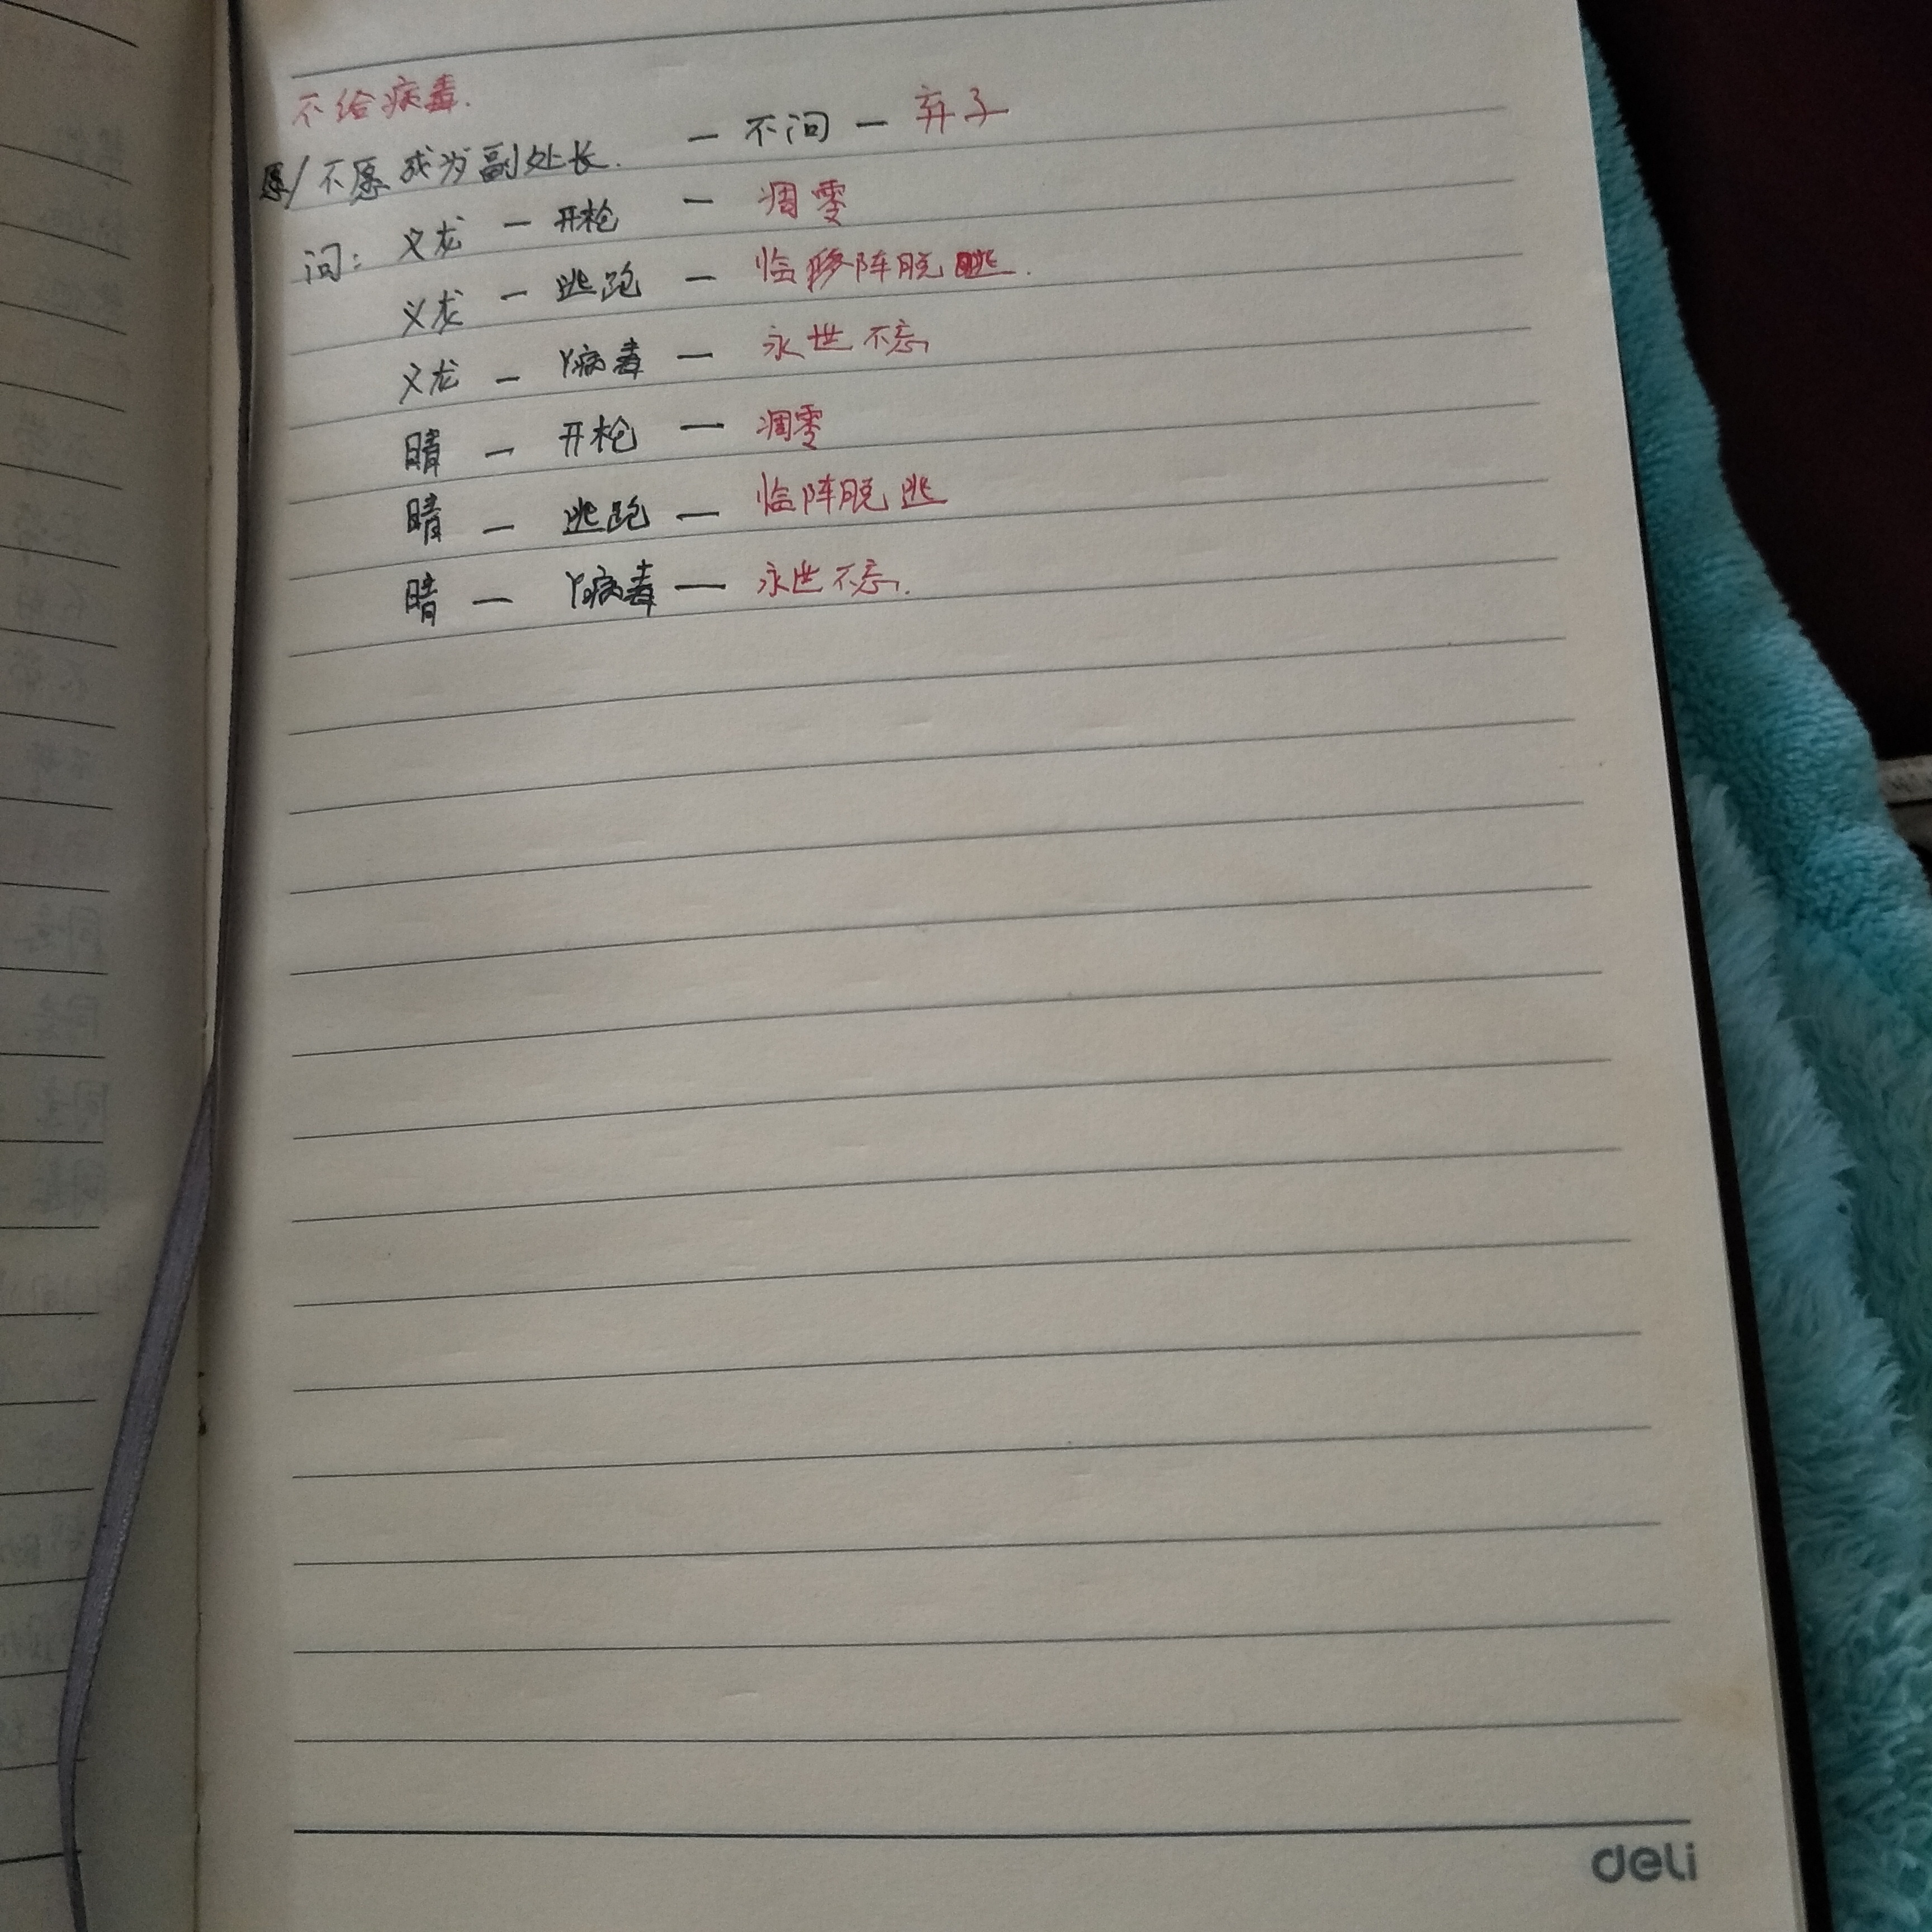 不给病毒.
愿/不愿成为副处长. — 不问 — 弃子
问: 义龙 — 开枪 — 凋零
义龙 — 逃跑 — 临阵脱逃.
义龙 — Y病毒 — 永世不忘
晴 — 开枪 — 凋零
晴 — 逃跑 — 临阵脱逃
晴 — Y病毒 — 永世不忘.
deli